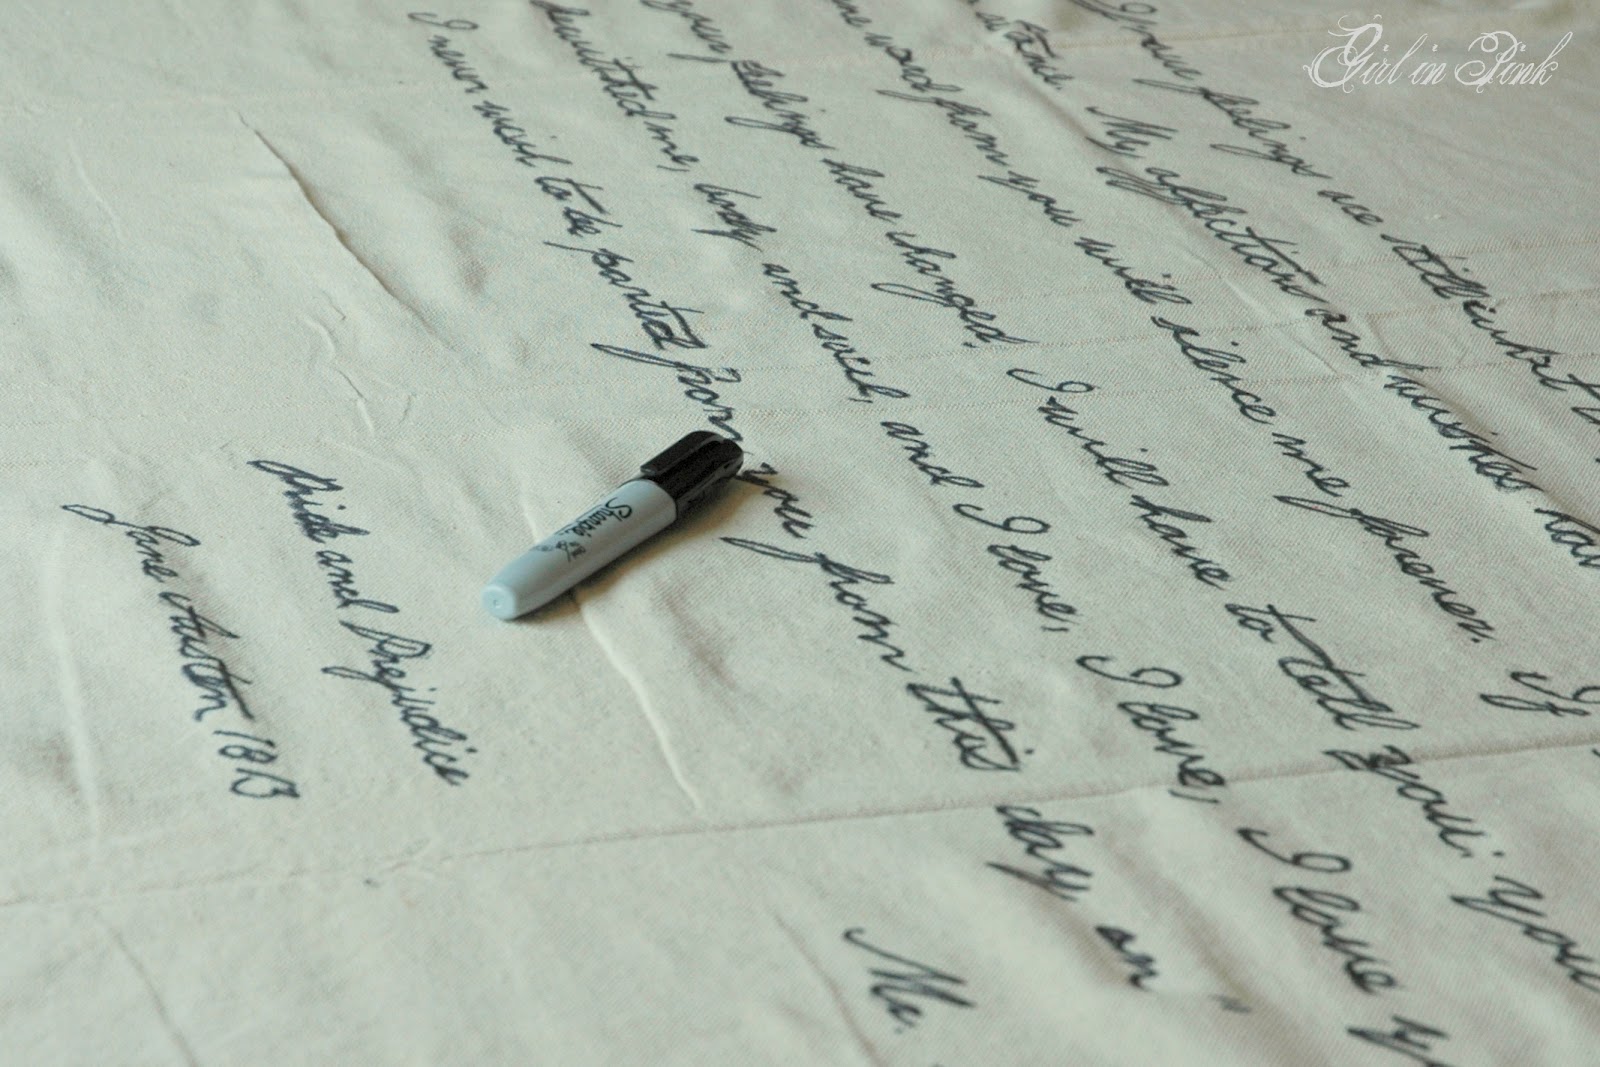 Girl in Pink
your feelings are still what
My affections and wishes hav
one word from you will silence me forever. If
your feelings have changed. I will have to tell you: you
bewitched me, body and soul, and I love, I love, I love y
I never wish to be parted from you from this day on"
Mr.
Pride and Prejudice
Jane Austen 1813
Sharpie